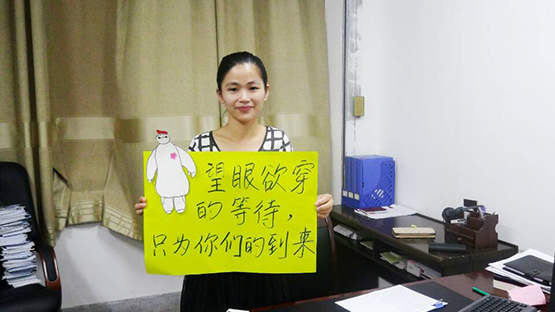 望眼欲穿
的等待，
只为你们的到来